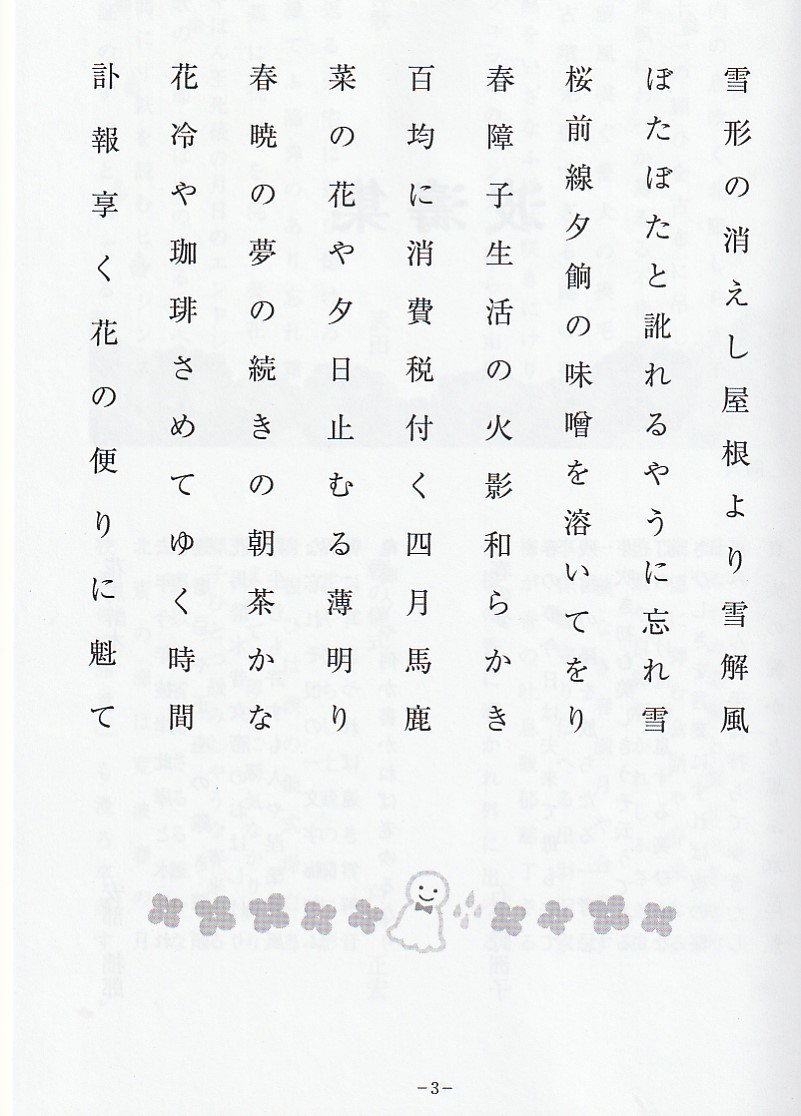 雪形の消えし屋根より雪解風
ぼたぼたと訛れるやうに忘れ雪
桜前線夕餉の味噌を溶いてをり
春障子生活の火影和らかき
百均に消費税付く四月馬鹿
菜の花や夕日止むる薄明り
春暁の夢の続きの朝茶かな
花冷や珈琲さめてゆく時間
訃報享く花の便りに魁て
－3－